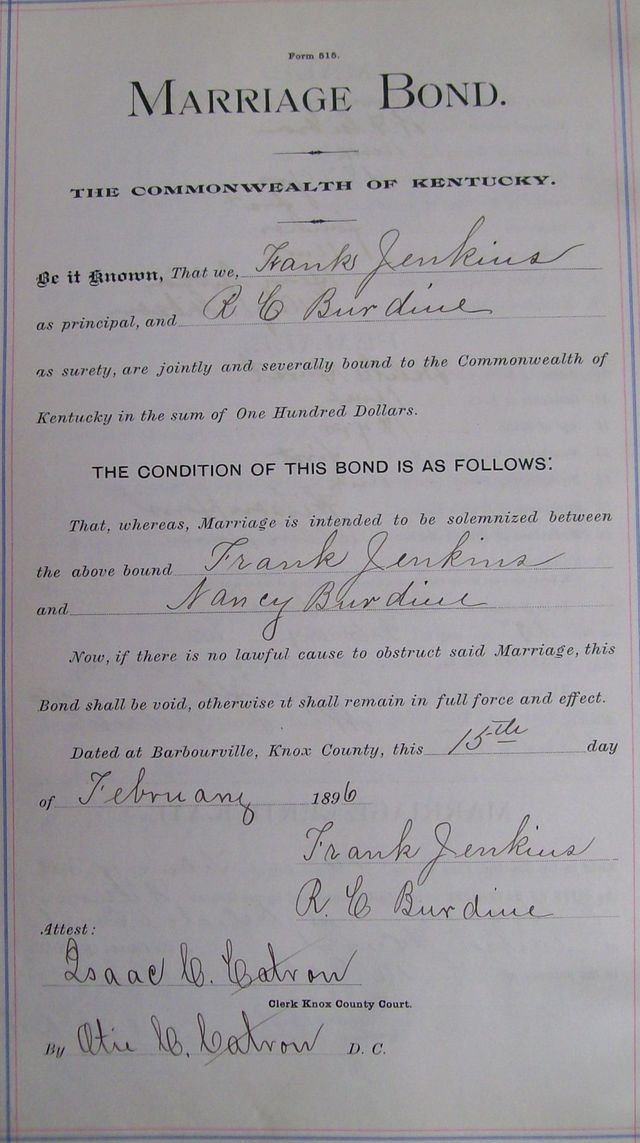 Form 515.
MARRIAGE BOND.
THE COMMONWEALTH OF KENTUCKY.
Be it Known, That we, Frank Jenkins
as principal, and R C Burdine
as surety, are jointly and severally bound to the Commonwealth of
Kentucky in the sum of One Hundred Dollars.
THE CONDITION OF THIS BOND IS AS FOLLOWS:
That, whereas, Marriage is intended to be solemnized between
the above bound Frank Jenkins
and Nancy Burdine
Now, if there is no lawful cause to obstruct said Marriage, this
Bond shall be void, otherwise it shall remain in full force and effect.
Dated at Barbourville, Knox County, this 15th day
of February 1896
Frank Jenkins
R. C Burdine
Attest:
Isaac C. Catron
Clerk Knox County Court.
By Otie C. Catron D. C.